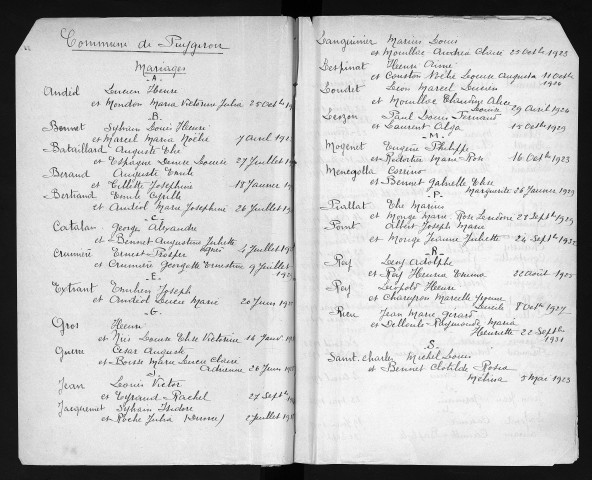 Commune de Puygiron
Mariages
-A-
Andéol Lucien Henri
et Mondon Maria Victorine Julia 25 Octb
-B-
Bonnet Sylvain Louis Henri
et Marcel Maria Noélie 7 avril 192
Bataillard Auguste Elie
et Espagne Denise Louise 27 Juillet
Beraud Auguste Emile
et Josephine 18 Janvier
Bertrand Emile Cyrille
et Andéol Marie Josephine 26 Juillet
-C-
Catalan George Alexandre
et Bennet Augustine Juliette
Agnès 4 Juillet
Crumière Ernest Prosper
et Crumière Georgette Ernestine 9 Juillet
-E-
Extrant Emilien Joseph
et Andéol Lucie Marie 20 Juin
-G-
Gros Henri
et Louise Elise Victorine 14 Janv.
Guerre César Auguste
et Marie Lucie Claire
Adrienne 26 Juin
-J-
Jean Louis Victor
et Eyraud Rachel 27 Septb
Jacquemet Sylvain Isidore
et Roche Julia (Drome) 2 Juillet
Languinier Marius Louis
et Mouillac Andréa Claire 25 Octb 1923
Lespinat Henri Aimé
et Louise Augusta 11 Octb
1924
Loudet Léon Marcel Lucien
et Mouillac Claudine Alice
Louise 29 avril 1924
Paul Louis Fernand
et Laurent Olga 15 Octb 1929
-M-
Mogenet Eugène Philippe
et Marie Rose 16 Octb 1923
Menegolla
et Bennet Gabrielle Elise
Marguerite 26 Janvier 1929
-P-
Piallat Elie Marius
et Monge Marie Rose 28 Septb 1929
Point Albert Joseph Marie
et Monge Jeanne Juliette 24 Septb 1932
-R-
Rey Adolphe
et Rey Emma 22 août 1925
Rey Léopold Henri
et Marcelle Yvonne
Lucile 8 Octb 1927
Rieu Jean Marie Gérard
et Raymonde Maria
Henriette 22 Septb
1931
-S-
Saint-charles Michel Louis
et Bennet Clotilde Rosa
Mélina 5 Mai 1923